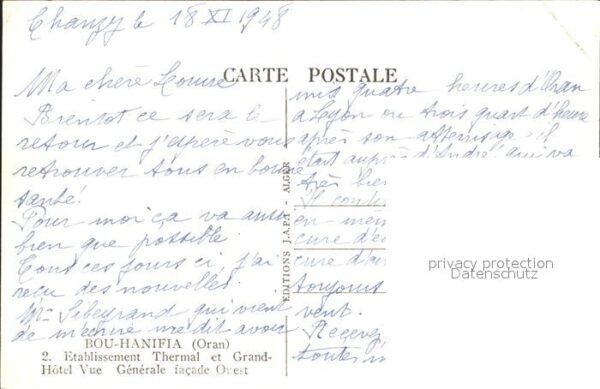 Chanzy le 18 XI 1948
CARTE POSTALE
Ma chère Louise
Bientôt ce sera le
retour et j'espère vous
retrouver tous en bonne
santé!
Pour moi ça va aussi
bien que possible.
Tous ces jours ci, j'ai
reçu des nouvelles.
Mr Sibeyrand qui vient
de m'écrire me dit avoir
mis quatre heures d'Oran
à Lyon ou trois quart d'heure
après son atterrissage il
était auprès d'André qui va
très bien
Il
en
cure
cure
toujours
vent.
Recevez
toutes
EDITIONS J.A.P.I - ALGER
BOU-HANIFIA (Oran)
2. Etablissement Thermal et Grand-
Hôtel Vue Générale façade Ouest
privacy protection
Datenschutz